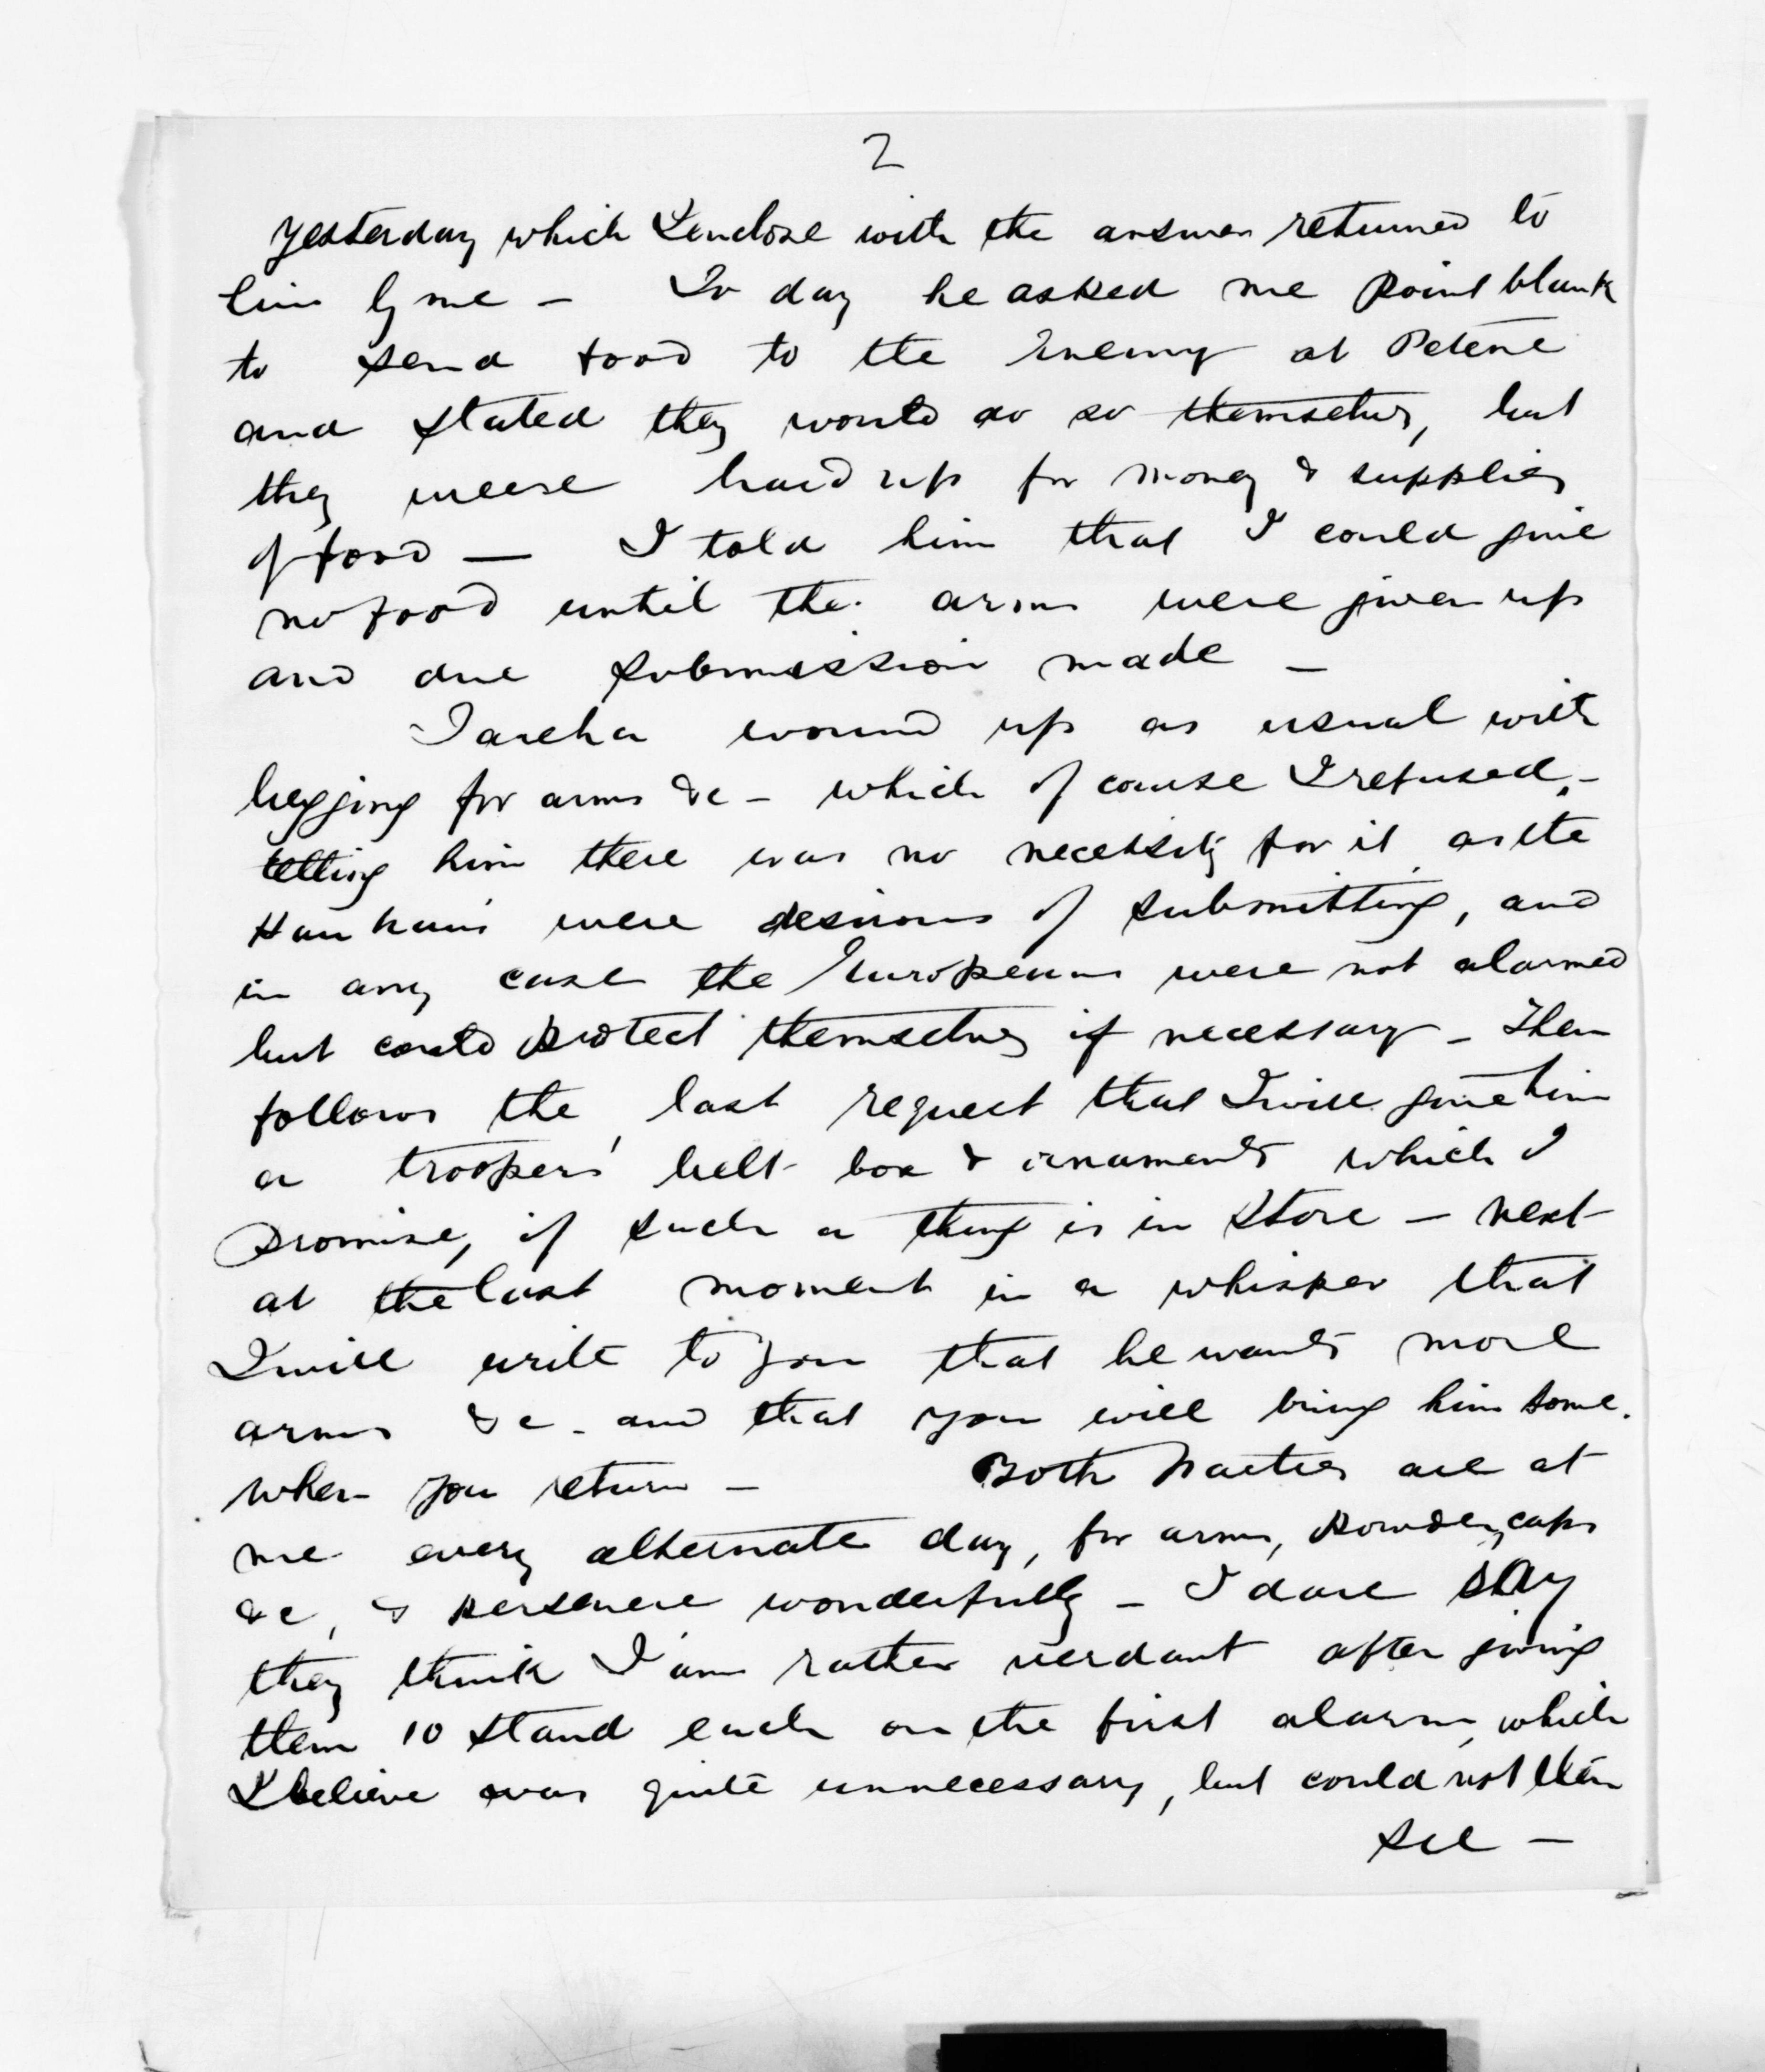 2
yesterday which I enclose with the answer returned to
him by me - To day he asked me point blank
to send food to the Enemy at Petane
and stated they would do so themselves, but
they weere hard up for money & supplies
of food — I told him that I could give
no food until the arms were given up
and due submission made -
Tareha wound up as usual with
begging for arms &c - which of course I refused, -
telling him there was no necessity for it as the
Hau haus were desirous of submitting, and
in any case the Europeans were not alarmed
but could protect themselves if necessary - Then
follows the last request that I will give him
a troopers' belt box & ornaments which I
promise, if such a thing is in store - next
at the last moment in a whisper that
I will write to you that he wants more
arms &c - and that you will bring him some.
when you return - Both parties are at
me every alternate day, for arms, powder, caps
&c, & persevere wonderfully - I dare say
they think I am rather verdant after giving
them 10 stand each on the first alarm, which
I believe was quite unnecessary, but could not then
see -